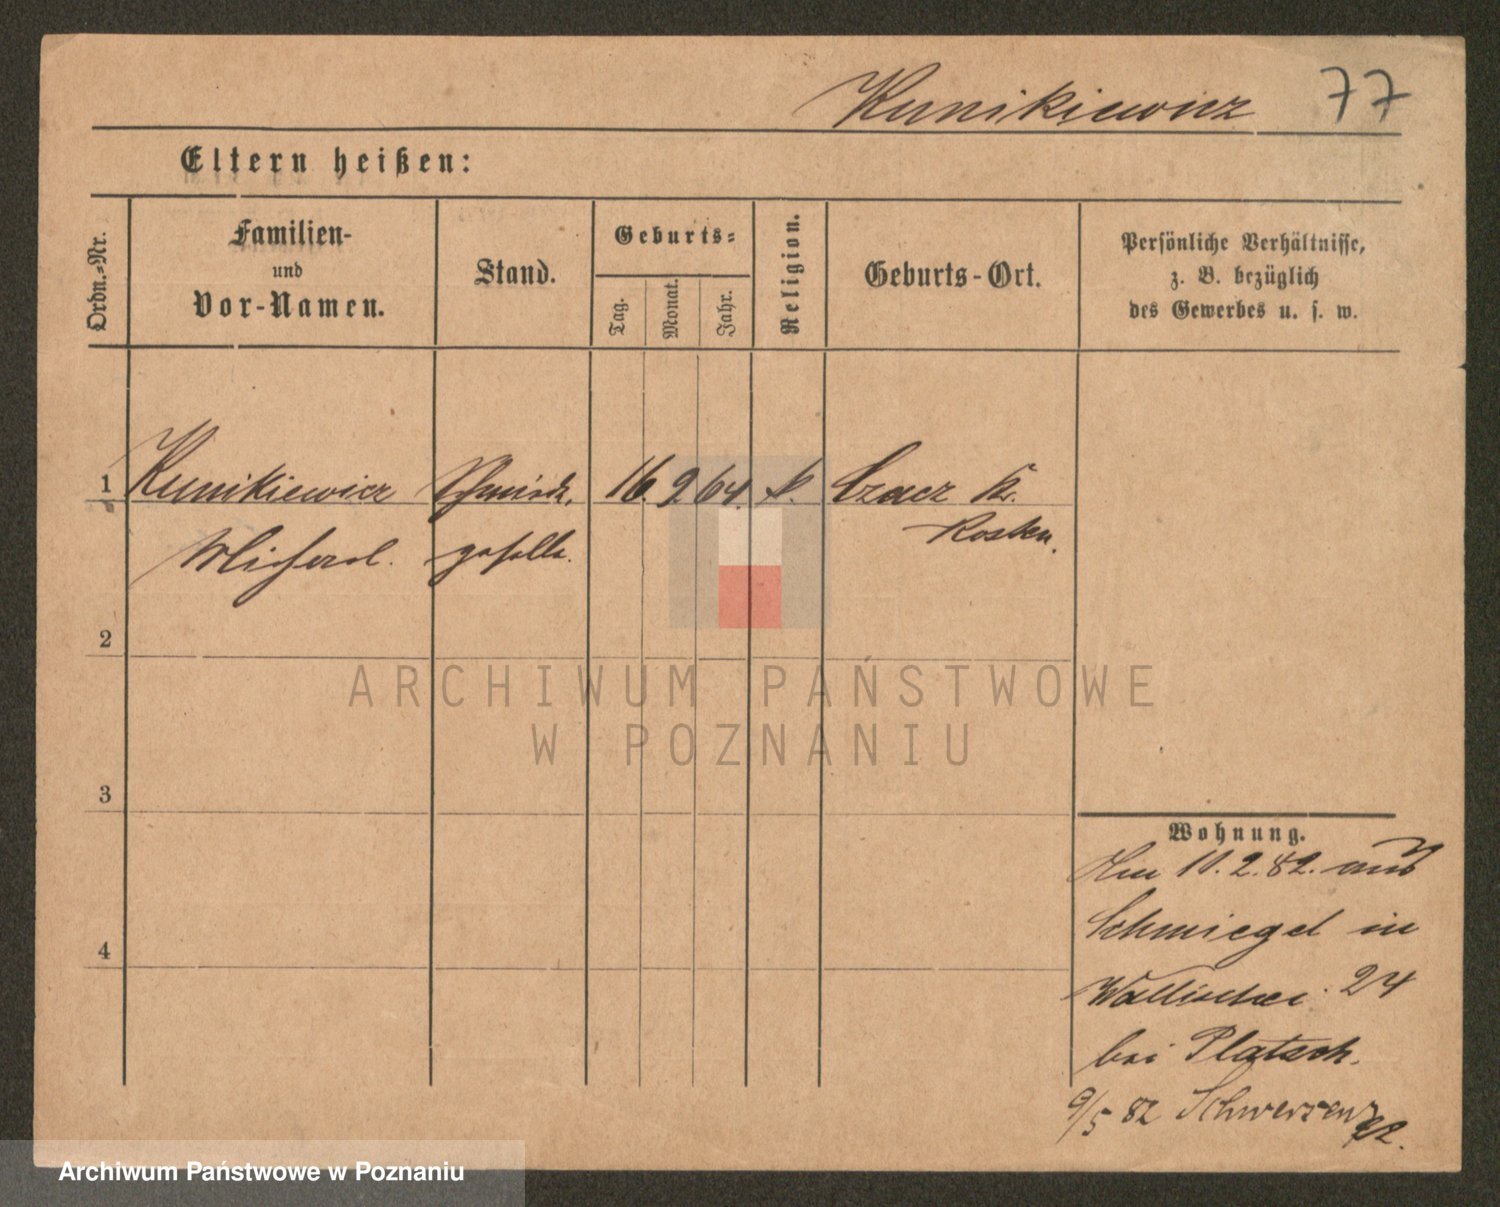 Kunikiewicz 77
Eltern heißen:
Ordn.-Nr.
Familien-
und
Vor-Namen.
Stand.
Geburts-
Tag.
Monat.
Jahr.
Religion.
Geburts-Ort.
Persönliche Verhältnisse,
z. B. bezüglich
des Gewerbes u. s. w.
1 Kunikiewicz Schmiede- 16. 9 64. k. Czacz Kr.
Michael. geselle. Kosten.
2
3
4
Wohnung.
Am 10.2.82. aus
Schmiegel in
Wallischei 24
bei Platsch.
9/5 82 Schwersenz
ARCHIWUM PAŃSTWOWE
W POZNANIU
Archiwum Państwowe w Poznaniu